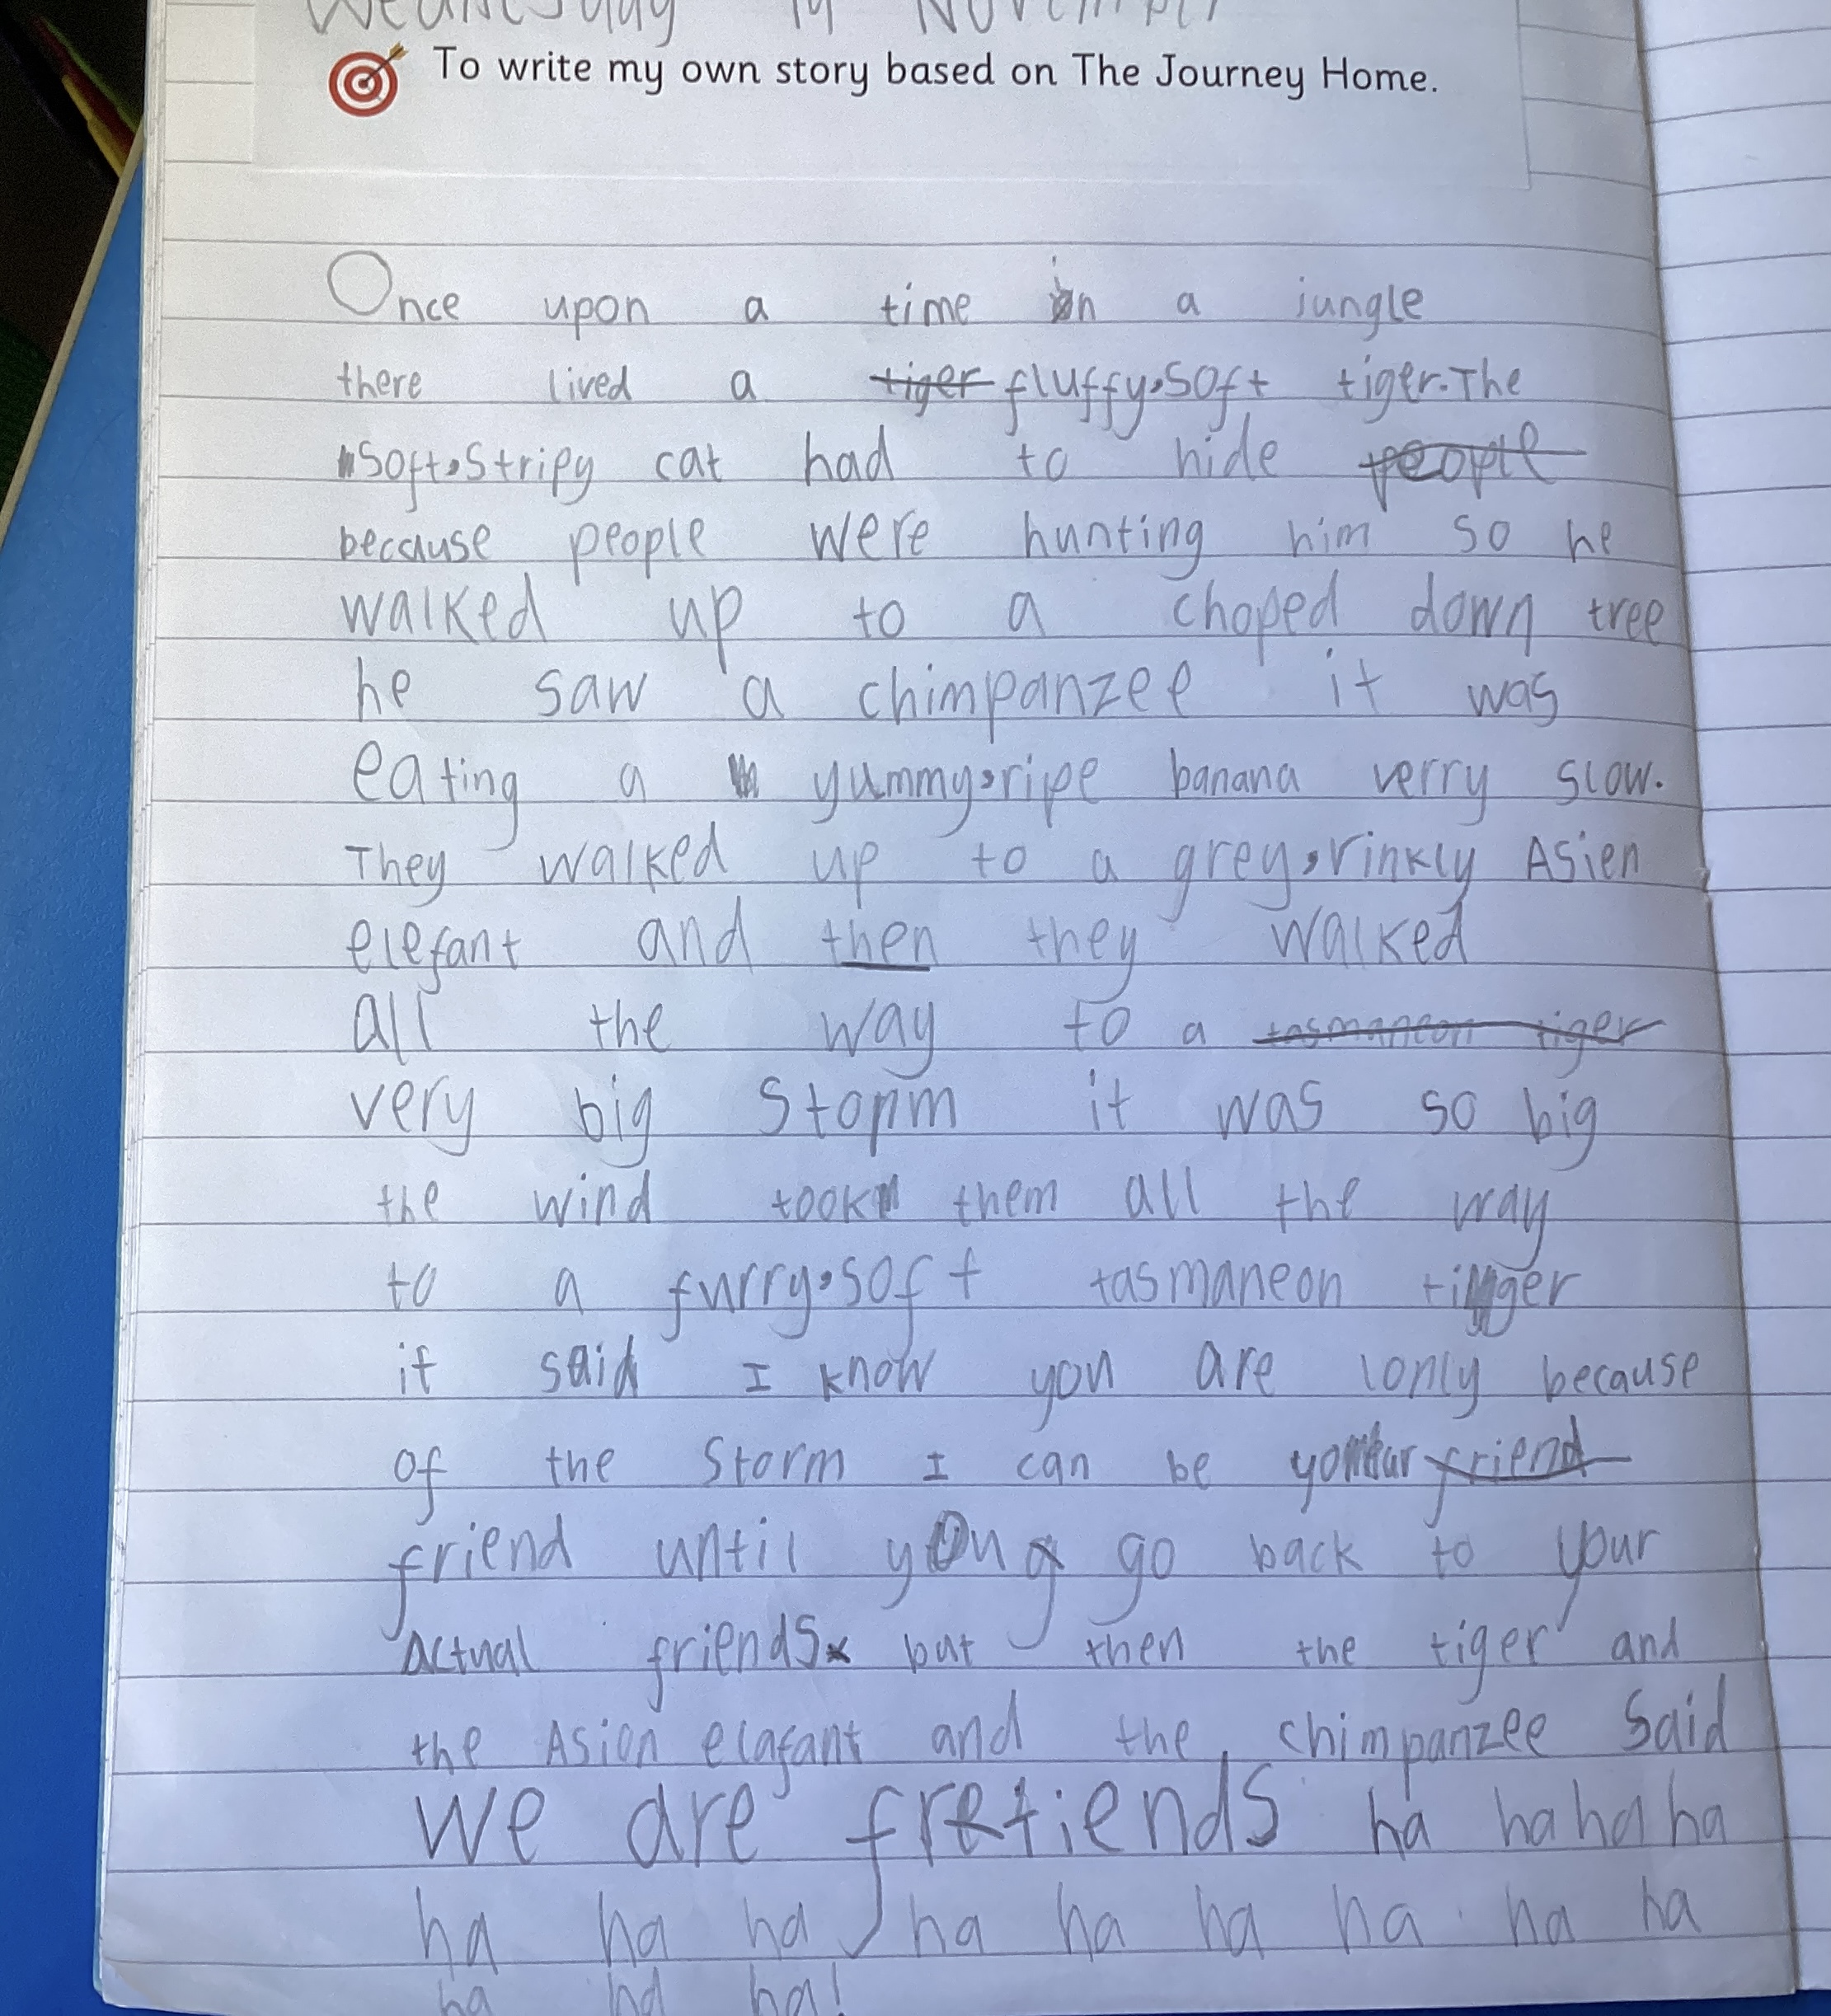 Wednesday 19 November
To write my own story based on The Journey Home.
Once upon a time in a jungle
there lived a tiger fluffy,soft tiger.The
soft,stripy cat had to hide people
because people were hunting him so he
walked up to a choped down tree
he saw a chimpanzee it was
eating a yummy,ripe banana verry slow.
They walked up to a grey,rinkly Asien
elefant and then they walked
all the way to a tasmaneon tiger
very big storm it was so big
the wind took them all the way
to a furry,soft tasmaneon tiger
it said I know you are lonly because
of the storm I can be your friend
friend until you go back to your
actual friends but then the tiger and
the Asion elafant and the chimpanzee said
we are friends ha ha ha ha
ha ha ha ha ha ha ha ha ha
ha ha ha!